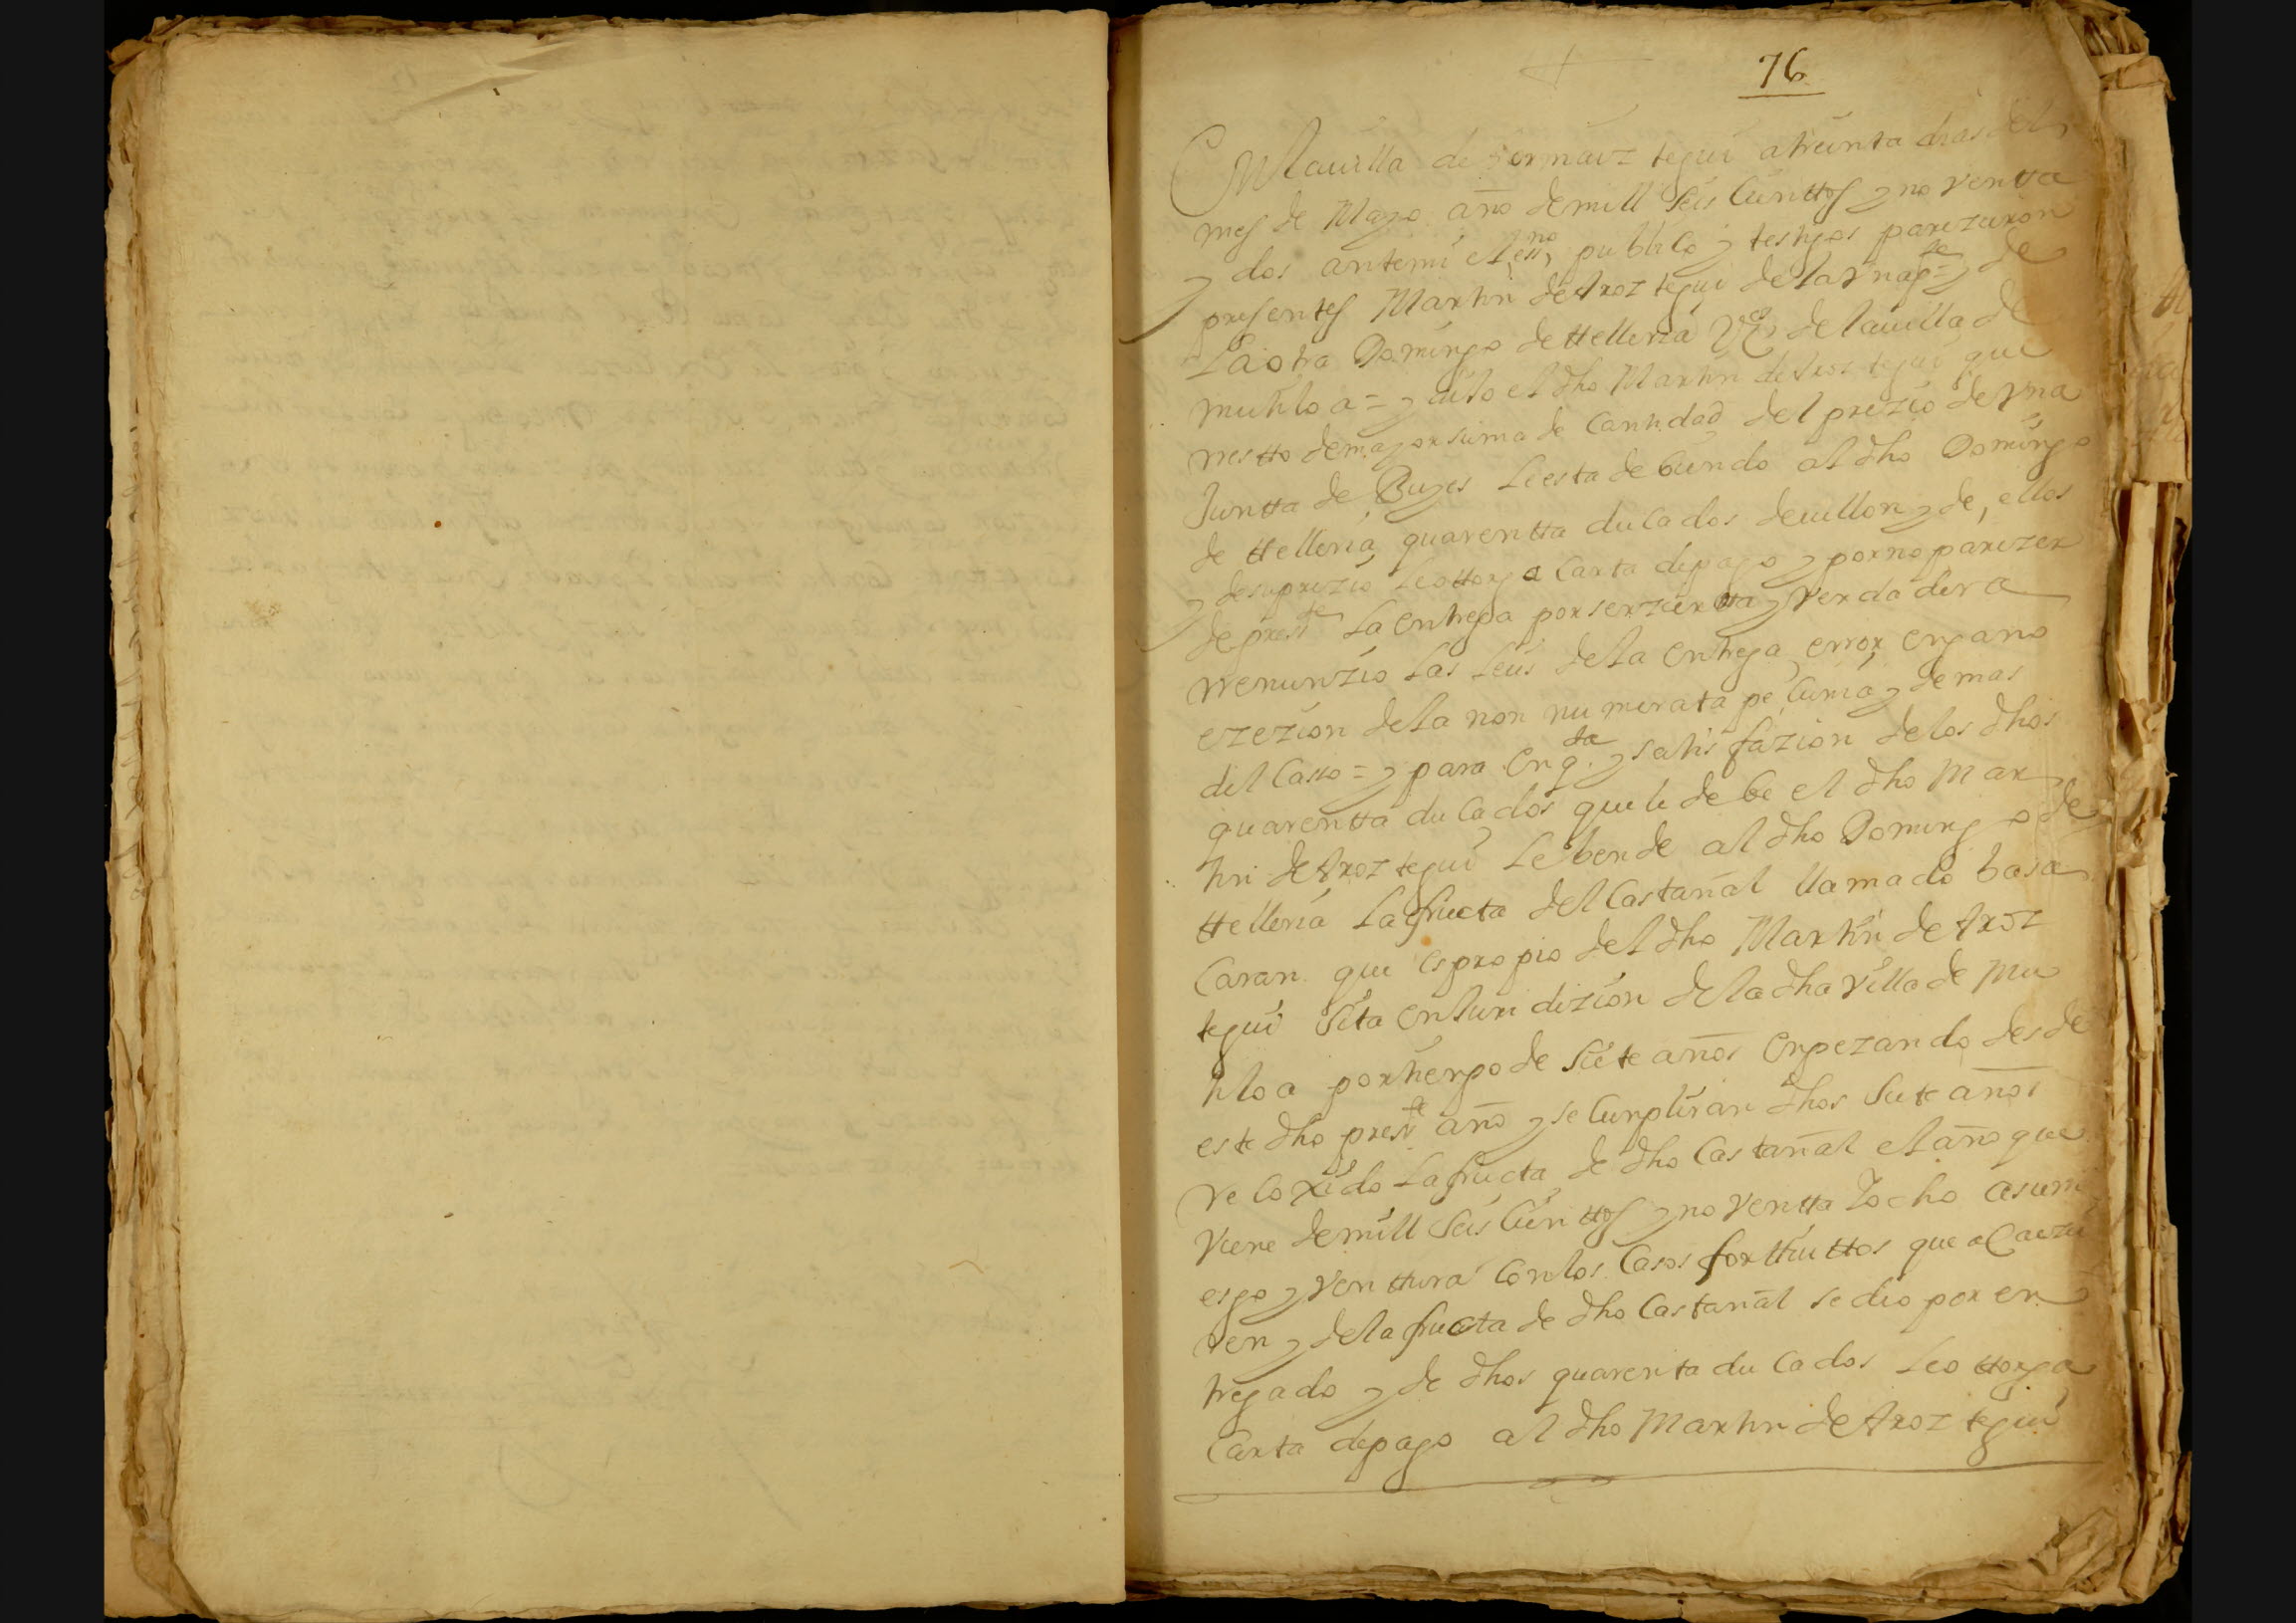 76
En la uilla de Ormaiz tegui atreinta dias del
mes de Mayo año de mill seis Cienttos y no ventta
y dos antemi el essno publico y testigos parezieron
presentes Martin de Aroz tegui de la Vna pte y de
La otra Domingo de ttelleria Vos de la uilla de
mutiloa = y dixo el dho Martin de Aroz tegui que
rresto de mayor suma de Cantidad del prezio de Vna
Juntta de Buyes le esta debiendo al dho Domingo
de ttelleria quarentta ducados de uillon y de, ellos
y de su prezio le ottorga Carta de pago y por no parezer
de preste La entrega por ser zierta y Verdadera
rrenunzio Las Leis de la entrega error engano
ezezion de la non numerata pecunia y demas
del Casso = y para en qta y satisfazion de los dhos
quarentta ducados que le debe el dho Mar
tin de Aroz tegui Le bende al dho Domingo de
ttelleria La fructa del Castañal llamado basa
Caran que es propio del dho Martin de Aroz
tegui Sita en Juridizion de la dha Villa de Mu
tiloa por tienpo de siete años enpezando desde
este dho preste año y se Cunpliran dhos siete años
recoxido La fructa de dho Castañal el año que
viene de mill seis Cienttos y no ventta Y ocho a su rri
esgo y Venttura Con los Casos forttuittos que acaezie
ren y de la fructa de dho Castañal se dio por en
tregado y de dhos quarenta ducados le ottorga
Carta de pago al dho Martin de Aroz tegui